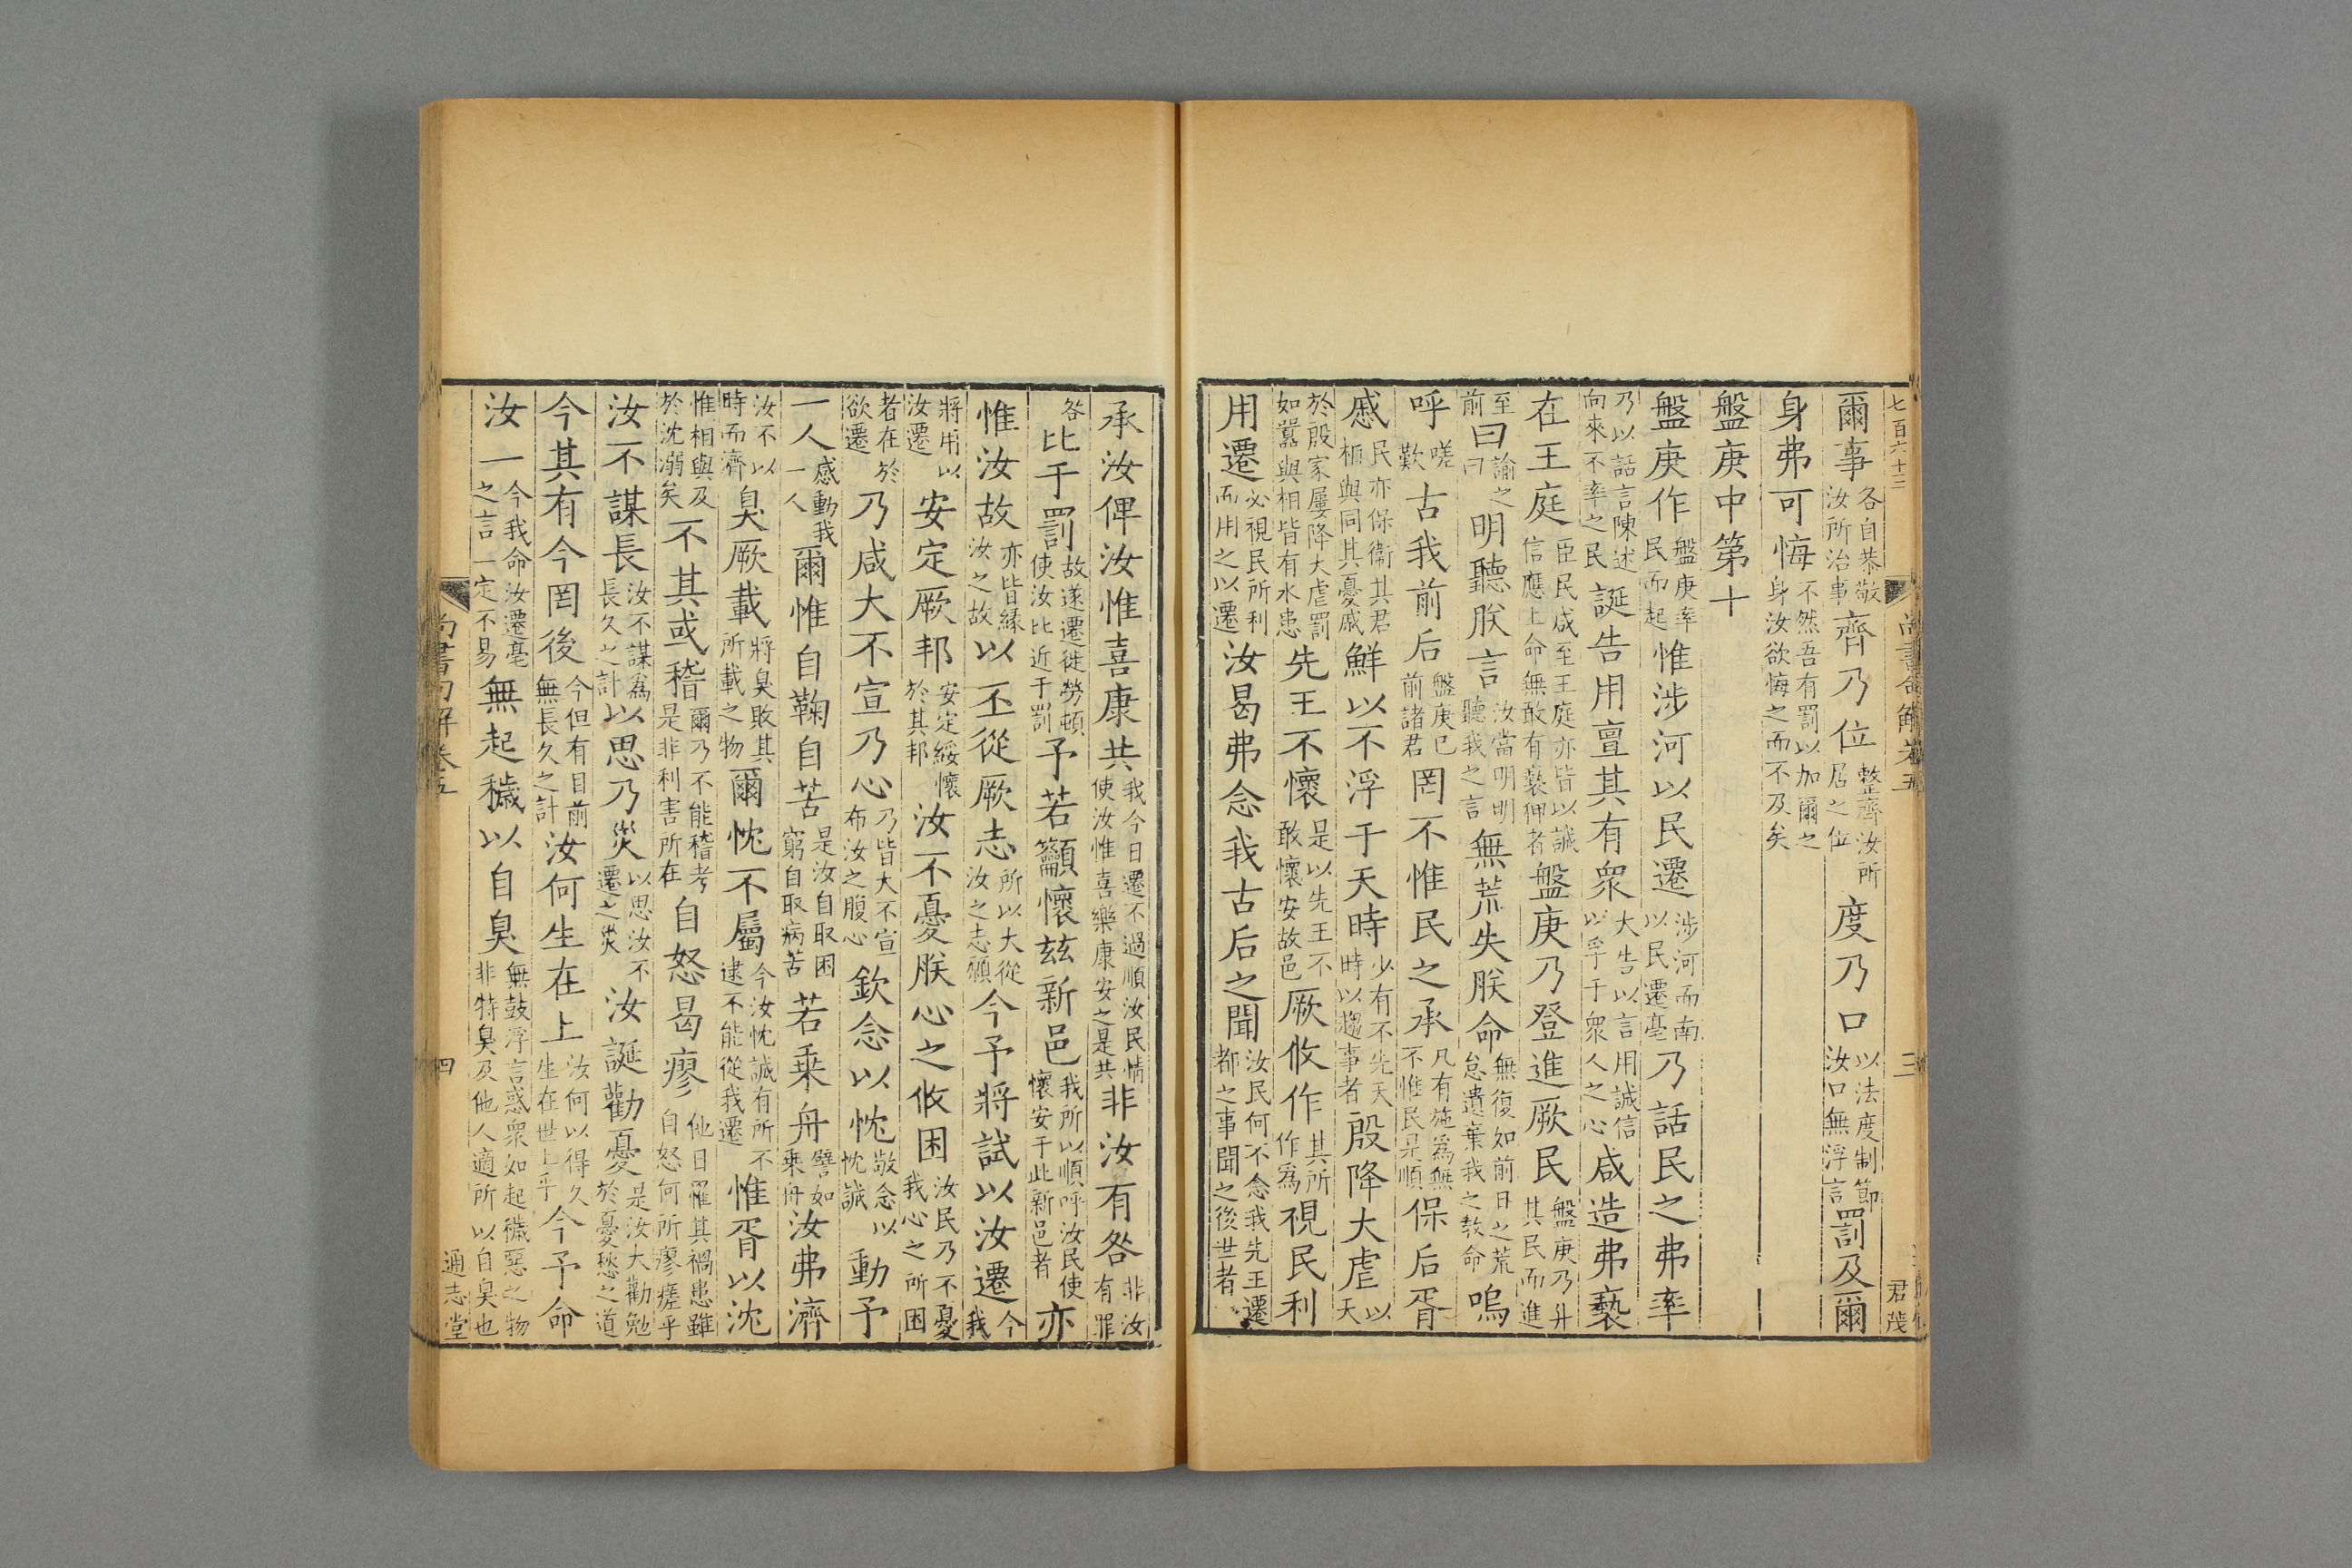 七百六十三 尚書句解卷五 三 君茂
爾事各自恭敬汝所治事齊乃位整齊汝所居之位度乃口以法度制節汝口無浮言罰及爾
身弗可悔不然吾有罰以加爾之身汝欲悔之而不及矣
盤庚中第十
盤庚作盤庚率民而起惟涉河以民遷涉河而南以民遷亳乃話民之弗率
乃以話言陳述向來不率之民誕告用亶其有衆大告以言用誠信以孚于衆人之心咸造弗褻
在王庭臣民咸至王庭亦皆以誠信應上命無敢有褻狎者盤庚乃登進厥民盤庚乃升其民而進
至前曰諭之曰明聽朕言汝當明明聽我之言無荒失朕命無復如前日之荒怠遺棄我之教命嗚
呼嗟歎古我前后盤庚已前諸君罔不惟民之承凡有施爲無不惟民是順保后胥
慼民亦保衞其君相與同其憂慼鮮以不浮于天時少有不先天時以趨事者殷降大虐以天
於殷家屢降大虐罰如嚣與相皆有水患先王不懷是以先王不敢懷安故邑厥攸作其所作爲視民利
用遷必視民所利而用之以遷汝曷弗念我古后之聞汝民何不念我先王遷都之事聞之後世者
承汝俾汝惟喜康共我今日遷不過順汝民情使汝惟喜樂康安之是共非汝有咎非汝有罪
咎比于罰故遂遷徙勞頓使汝比近于罰予若籲懷兹新邑我所以順呼汝民使懷安于此新邑者亦
惟汝故亦皆緣汝之故以丕從厥志所以大從汝之志願今予將試以汝遷今我
將用以汝遷安定厥邦安定綏懷於其邦汝不憂朕心之攸困汝民乃不憂我心之所困
者在於欲遷乃咸大不宣乃心乃皆大不宣布汝之腹心欽念以忱敬念以忱誠動予
一人感動我一人爾惟自鞠自苦是汝自取困窮自取病苦若乘舟譬如乘舟汝弗濟
汝不以時而濟臭厥載將臭敗其所載之物爾忱不屬今汝忱誠有所不逮不能從我遷惟胥以沈
惟相與及於沈溺矣不其或稽爾乃不能稽考是非利害所在自怒曷瘳他日罹其禍患雖自怒何所瘳瘥乎
汝不謀長汝不謀爲長久之計以思乃災以思汝不遷之災汝誕勸憂是汝大勸勉於憂愁之道
今其有今罔後今但有目前無長久之計汝何生在上汝何以得久生在世上乎今予命
汝一今我命汝遷亳之言一定不易無起穢以自臭無鼓浮言惑衆如起穢惡之物非特臭及他人適所以自臭也
尚書句解卷五 四 通志堂